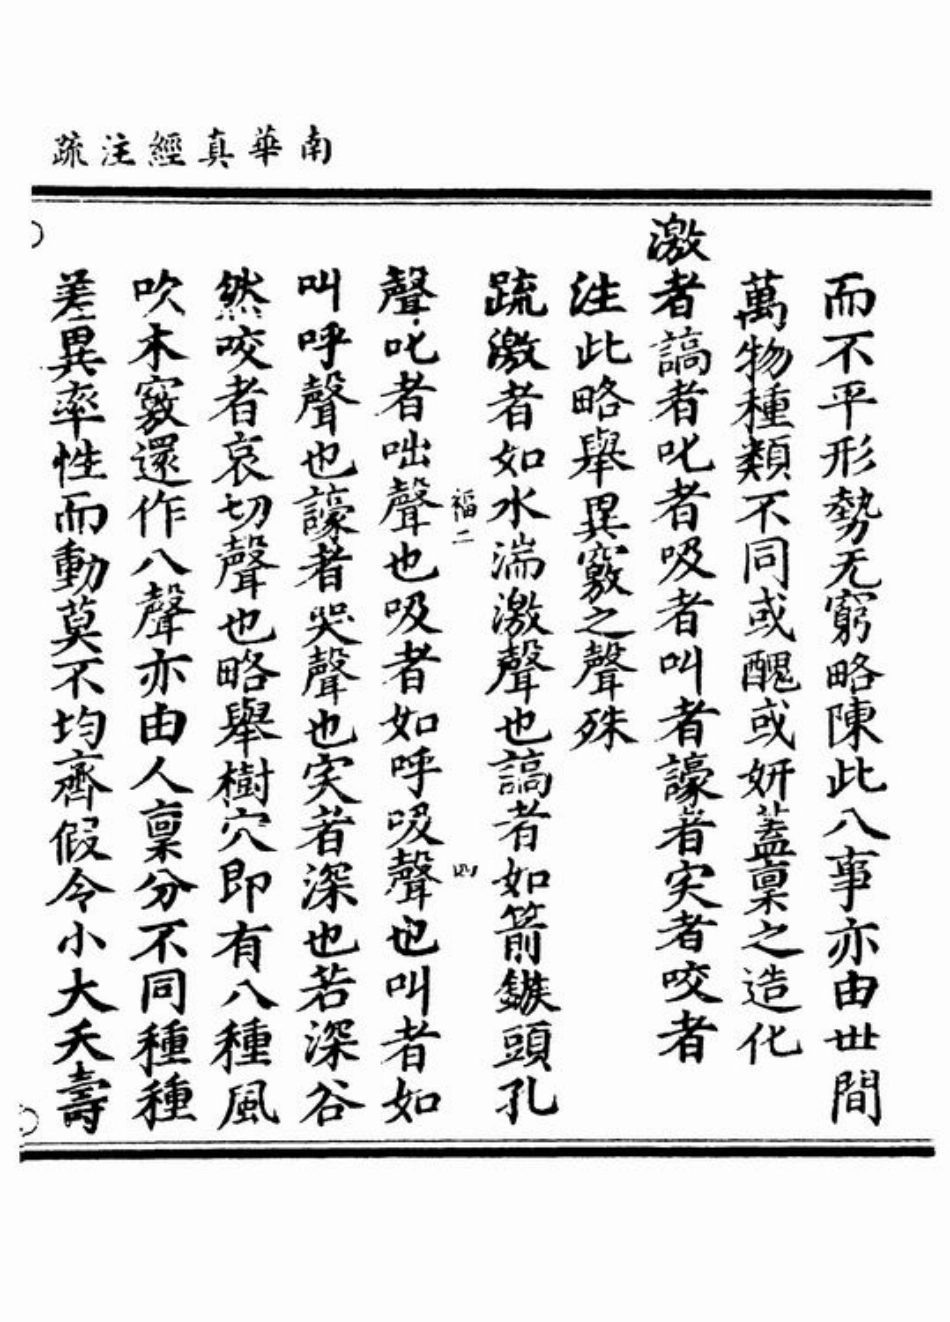 南華真經注疏
而不平形勢无窮略陳此八事亦由世間
萬物種類不同或醜或妍蓋稟之造化
激者謞者叱者吸者叫者譹者宎者咬者
注此略舉異竅之聲殊
疏激者如水湍激聲也謞者如箭鏃頭孔
福二
四
聲叱者咄聲也吸者如呼吸聲也叫者如
叫呼聲也譹者哭聲也宎者深也若深谷
然咬者哀切聲也略舉樹穴即有八種風
吹木竅還作八聲亦由人稟分不同種種
差異率性而動莫不均齊假令小大夭壽